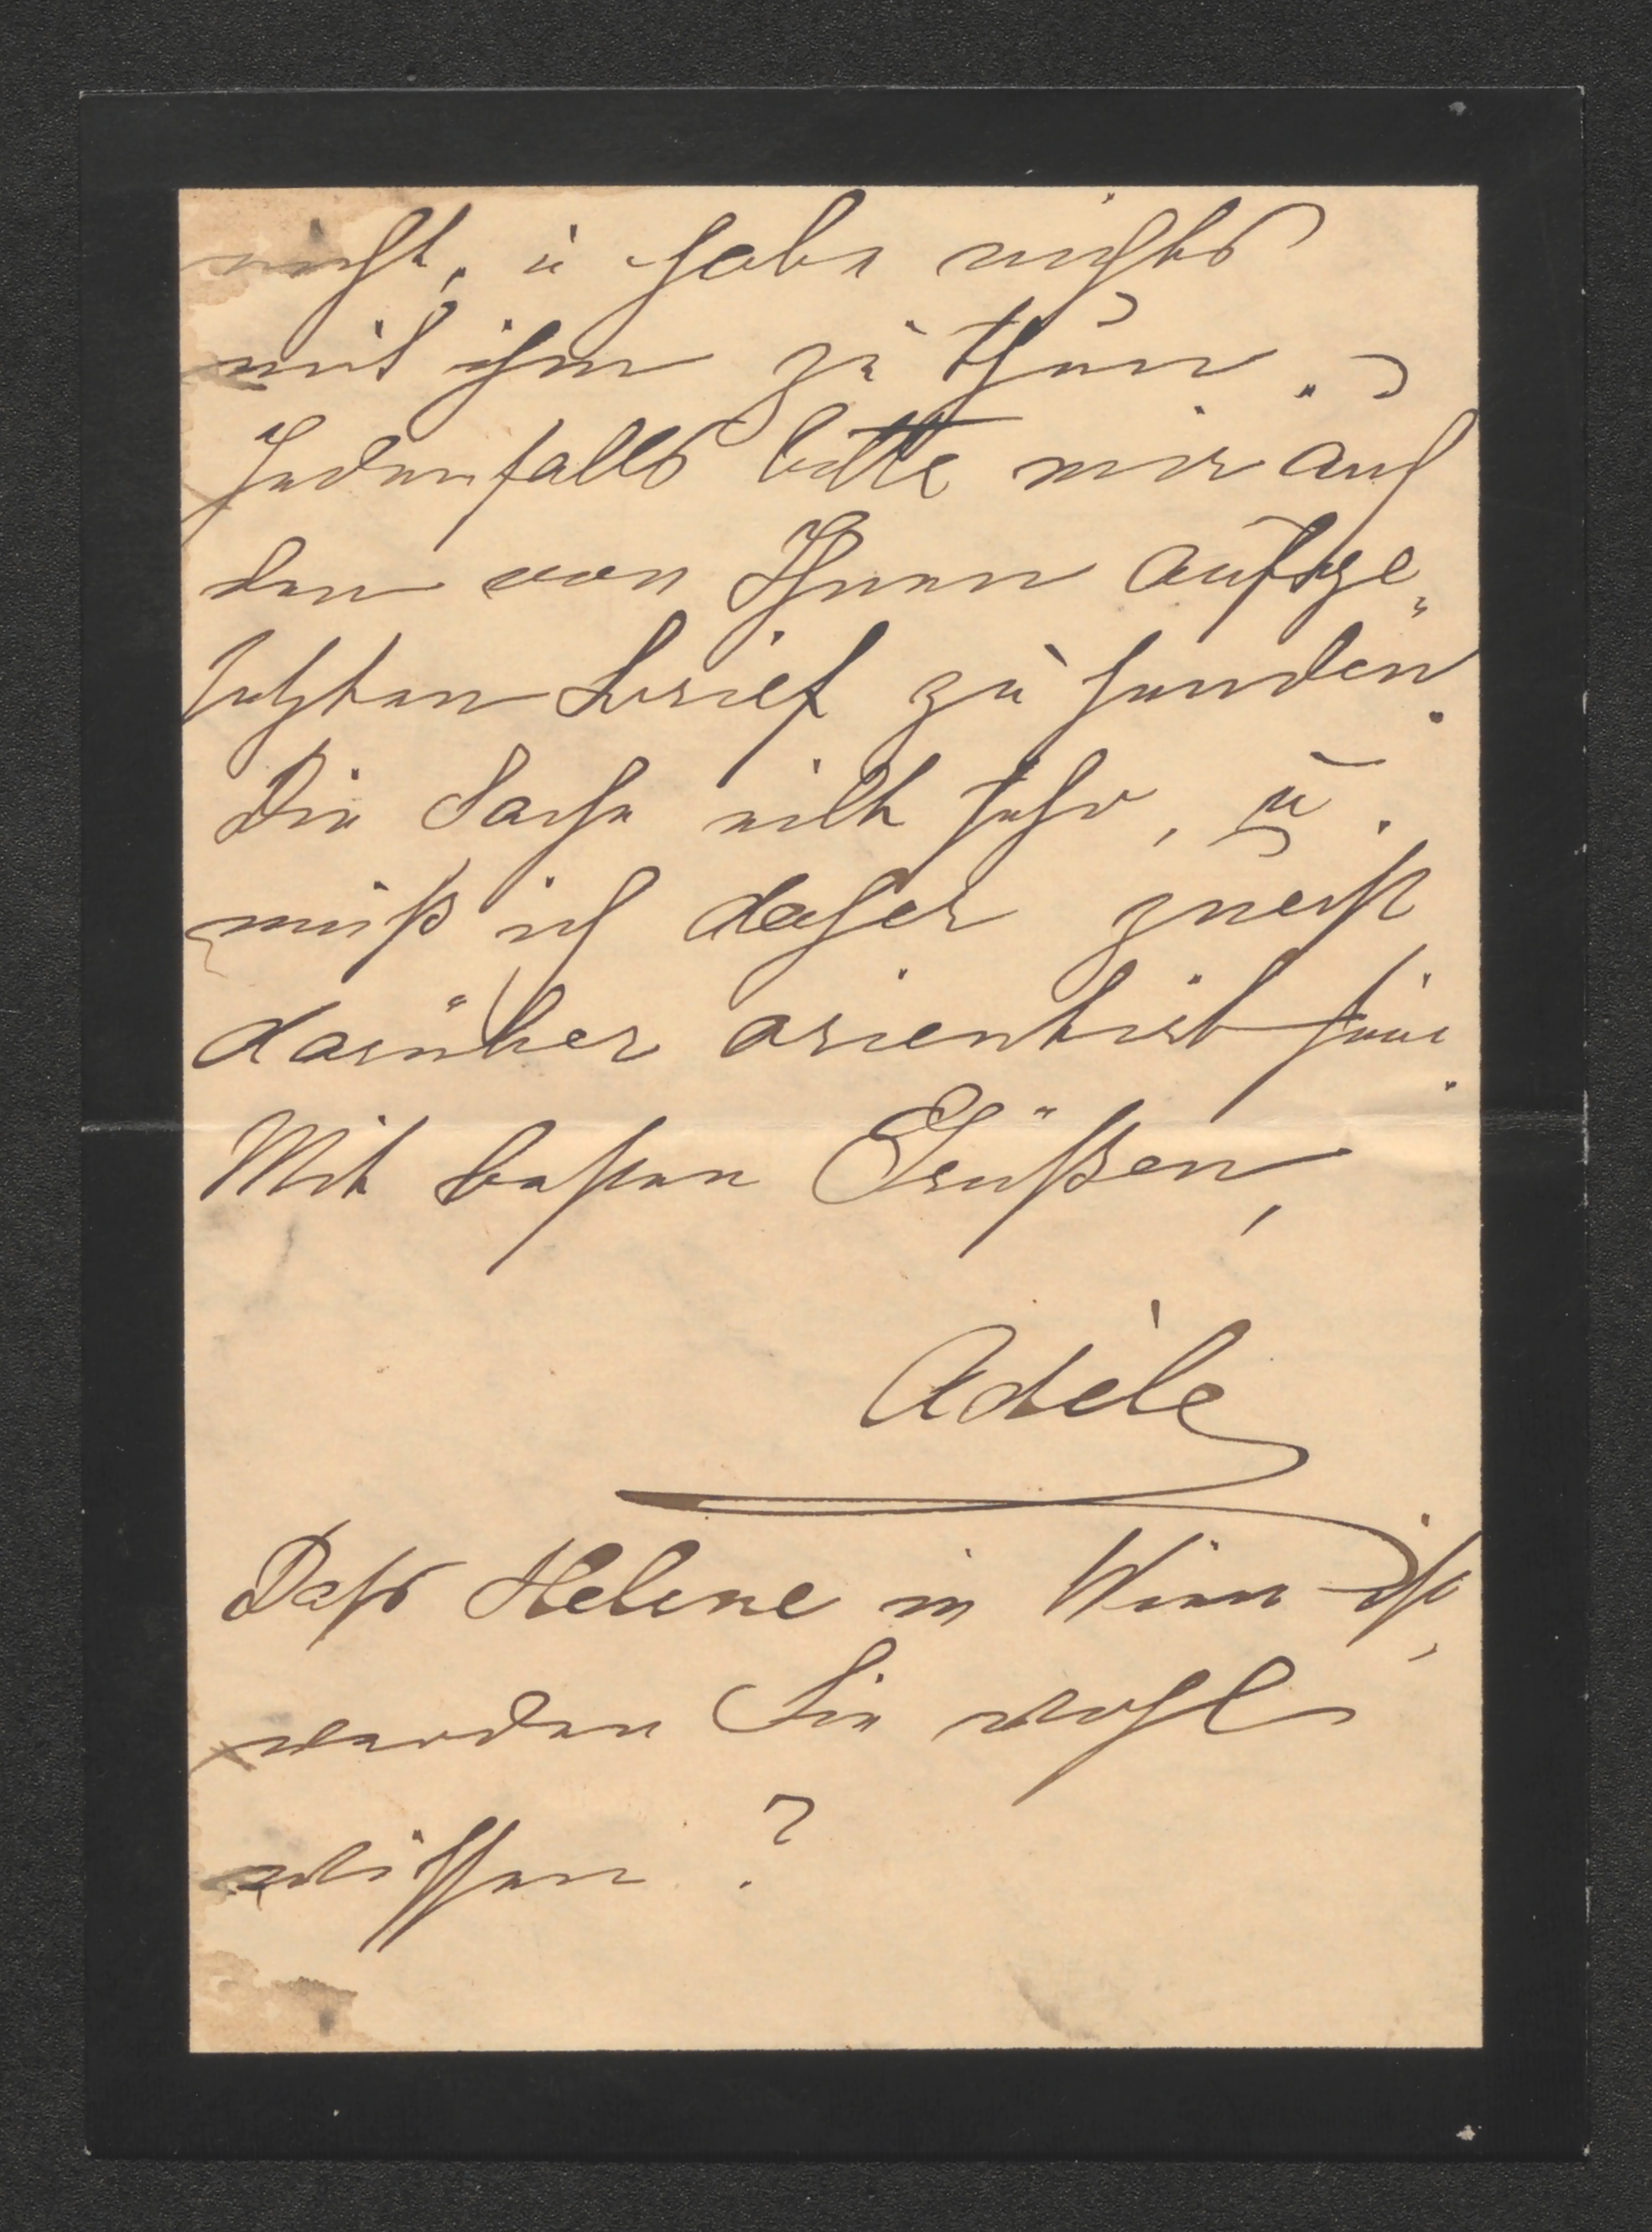 nicht, u habe nichts
mit ihm zu thun.
Jedenfalls bitte mir auch
den von Ihnen aufge„
setzten Brief zu senden.
Die Sache eilt sehr, u.
muß ich daher zuerst
darüber orientirt sein.
Mit besten Grüßen,
Adèle
Dass Helene in Wien ist,
werden Sie wohl
wissen?